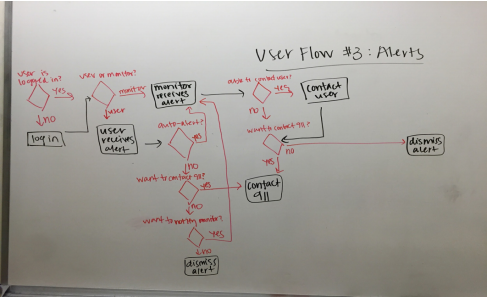 User Flow #3: Alerts
user is
logged in?
yes
no
log in
user or monitor?
monitor
user
monitor
receives
alert
user
receives
alert
auto-alert?
yes
no
want to contact 911?
yes
no
want to notify monitor?
yes
no
dismiss
alert
auto to contact user?
yes
no
contact
user
want to contact 911?
yes
no
contact
911
dismiss
alert